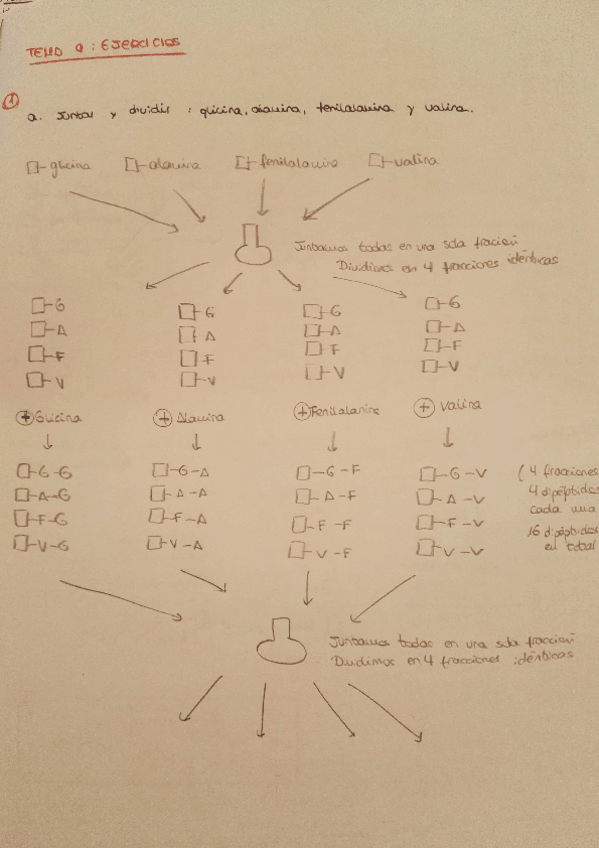 TEMA 9: EJERCICIOS
①
a. Juntar y dividir: glicina, alanina, fenilalanina y valina.
glicina alanina fenilalanina valina
Juntamos todas en una sola fracción
Dividimos en 4 fracciones idénticas
G G G G
A A A A
F F F F
V V V V
+ Glicina + Alanina + Fenilalanina + Valina
G-G G-A G-F G-V (4 fracciones
A-G A-A A-F A-V 4 dipéptidos
cada una
F-G F-A F-F F-V 16 dipéptidos
V-G V-A V-F V-V en total
Juntamos todas en una sola fracción
Dividimos en 4 fracciones idénticas